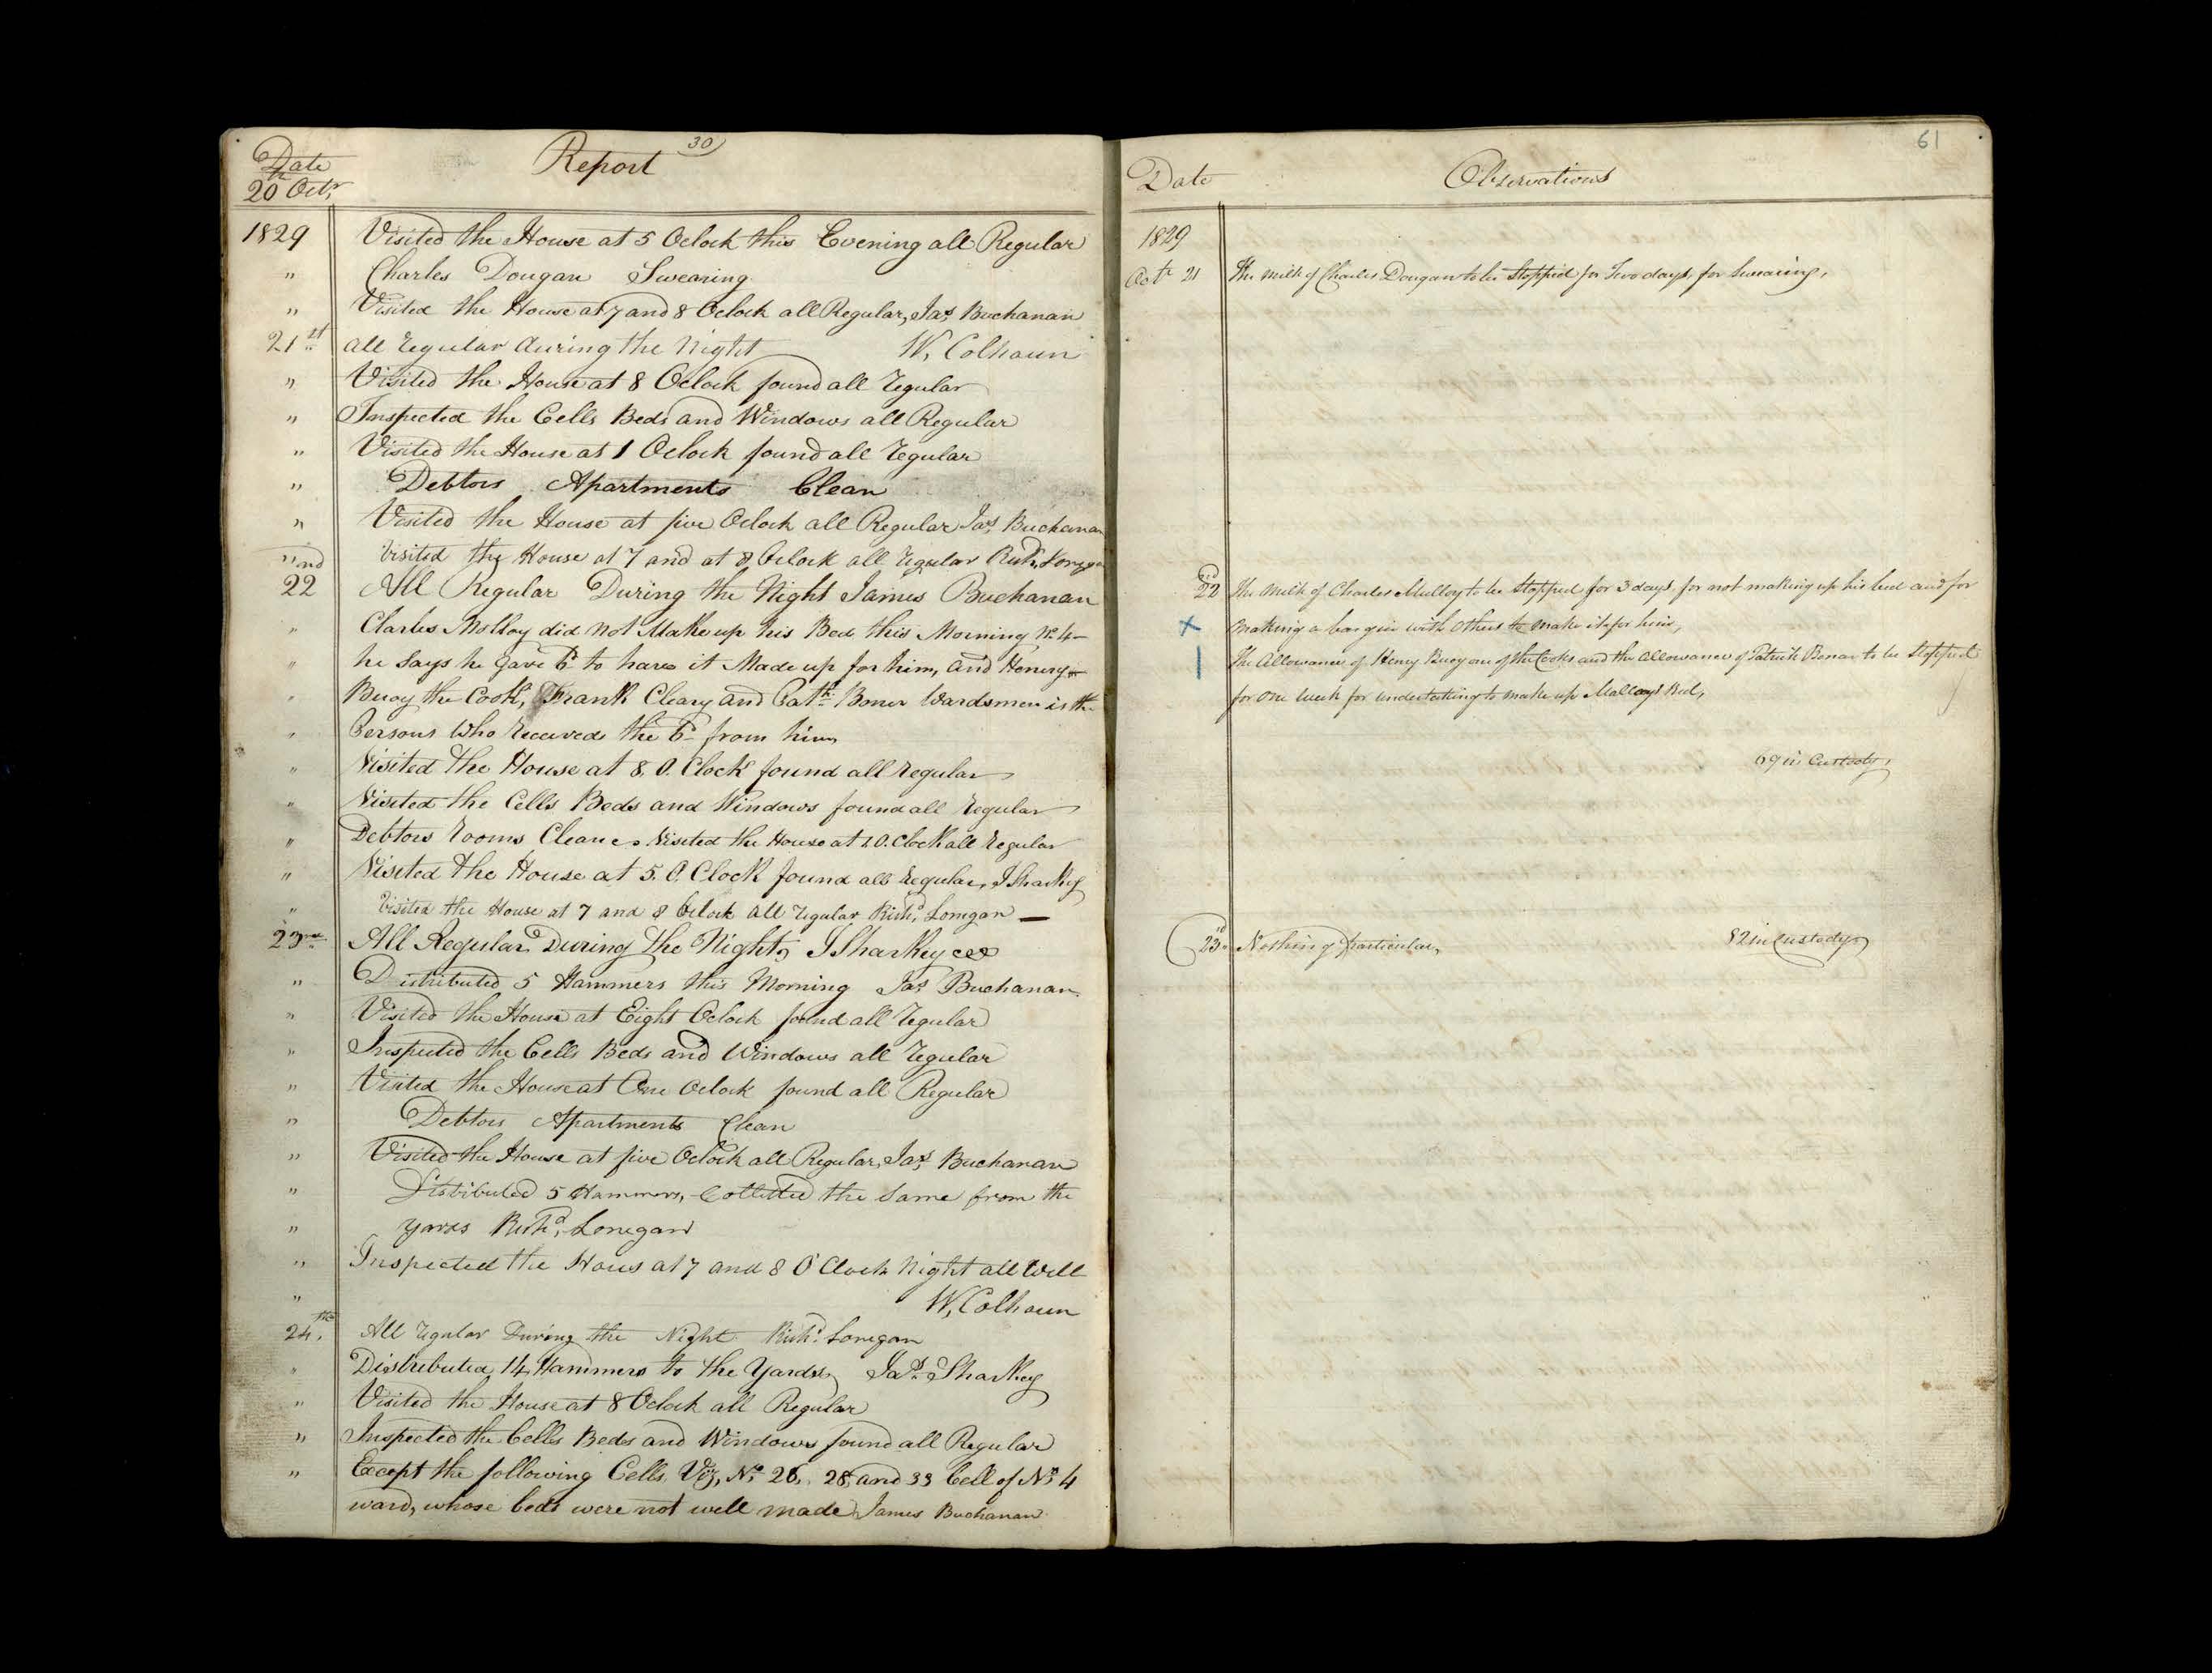 30
Date Report
20th Octr
1829 Visited the House at 5 Oclock this Evening all Regular
" Charles Dougan Swearing
" Visited the House at 7 and 8 Oclock all Regular, Jas Buchanan
21st all regular during the Night W. Colhoun
" Visited the House at 8 Oclock found all regular
" Inspected the Cells Beds and Windows all Regular
" Visited the House at 1 Oclock found all regular
" Debtors Apartments Clean
" Visited the House at five Oclock all Regular Jas Buchanan
" Visited the House at 7 and at 8 Oclock all regular Richd Lonegan
22nd All Regular During the Night James Buchanan
" Charles Molloy did not Make up his Bed this Morning No 4
" he Says he gave 6d to have it Made up for him, and Henery
" Buoy the Cook, Frank Cleary and Patk Boner Wardsmen is the
" Persons Who Received the 6d from him
" Visited the House at 8 O. Clock found all regular
" Visited the Cells Beds and Windows found all regular
" Debtors rooms Clean. Visited the House at 1 O. Clock all regular
" Visited the House at 5. O. Clock found all regular, J Sharkey
" Visited the House at 7 and 8 Oclock all regular Richd Lonegan —
23rd All Regular During the Night, J Sharkey
" Distributed 5 Hammers this Morning Jas Buchanan
" Visited the House at Eight Oclock found all regular
" Inspected the Cells Beds and Windows all regular
" Visited the House at One Oclock found all Regular
" Debtors Apartments Clean
" Visited the House at five Oclock all Regular, Jas Buchanan
" Distributed 5 Hammers, Collected the Same from the
" yards Richd Lonegan
" Inspected the Hous at 7 and 8 O Clock Night all Well
" W. Colhoun
24th All regular During the Night Richd Lonegan
" Distributed 14 Hammers to the Yards, Jas Sharkey
" Visited the House at 8 Oclock all Regular
" Inspected the Cells Beds and Windows found all Regular
" Except the following Cells Viz, No 26, 28, and 33 Cell of No 4
ward, whose beds were not well made James Buchanan
61
Date Observations
1829
Octr 21 The milk of Charles Dougan to be Stopped for Two days, for Swearing,
22nd The Milk of Charles Mulloy to be Stopped for 3 days for not making up his bed and for
x making a bargin with others to make it for him,
| The Allowance of Henry Buoy one of the Cooks and the Allowance of Patrick Bonar to be Stopped
for One Week for undertaking to make up Malloys Bed,
69 in Custody,
23rd Nothing particular, 82 in Custody